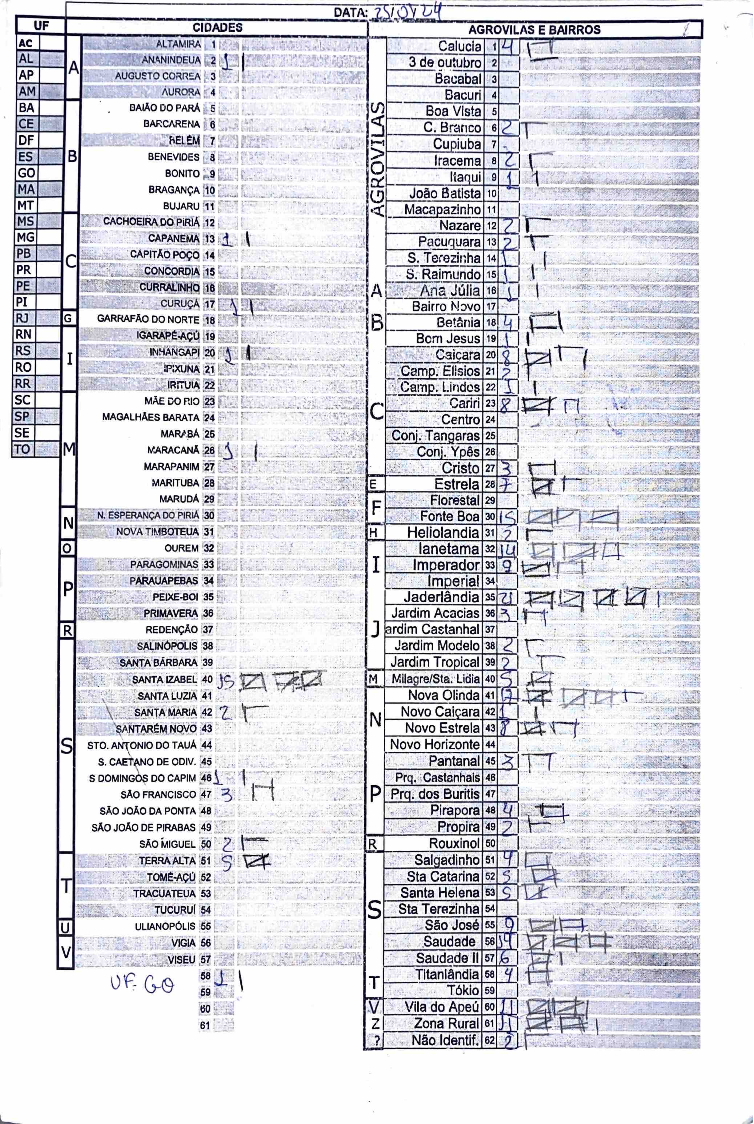 DATA: 25/04/24
UF CIDADES AGROVILAS E BAIRROS
AC
AL
AP
AM
BA
CE
DF
ES
GO
MA
MT
MS
MG
PB
PR
PE
PI
RJ
RN
RS
RO
RR
SC
SP
SE
TO
A
ALTAMIRA 1
ANANINDEUA 2 1
AUGUSTO CORREA 3
AURORA 4
B
BAIÃO DO PARÁ 5
BARCARENA 6
BELÉM 7
BENEVIDES 8
BONITO 9
BRAGANÇA 10
BUJARU 11
C
CACHOEIRA DO PIRIÁ 12
CAPANEMA 13 1
CAPITÃO POÇO 14
CONCORDIA 15
CURRALINHO 16
CURUÇA 17 1
G
GARRAFÃO DO NORTE 18
I
IGARAPÉ-AÇÚ 19
INHANGAPI 20 1
IPIXUNA 21
IRITUIA 22
M
MÃE DO RIO 23
MAGALHÃES BARATA 24
MARABÁ 25
MARACANÃ 26 1
MARAPANIM 27
MARITUBA 28
MARUDÁ 29
N
N. ESPERANÇA DO PIRIÁ 30
NOVA TIMBOTEUA 31
O
OUREM 32
P
PARAGOMINAS 33
PARAUAPEBAS 34
PEIXE-BOI 35
PRIMAVERA 36
R
REDENÇÃO 37
S
SALINÓPOLIS 38
SANTA BÁRBARA 39
SANTA IZABEL 40 15
SANTA LUZIA 41
SANTA MARIA 42 2
SANTARÉM NOVO 43
STO. ANTONIO DO TAUÁ 44
S. CAETANO DE ODIV. 45
S DOMINGOS DO CAPIM 46 1
SÃO FRANCISCO 47 3
SÃO JOÃO DA PONTA 48
SÃO JOÃO DE PIRABAS 49
SÃO MIGUEL 50 2
T
TERRA ALTA 51 5
TOMÉ-AÇÚ 52
TRACUATEUA 53
TUCURUÍ 54
U
ULIANOPÓLIS 55
V
VIGIA 56
VISEU 57
UF: GO 58 1
59
60
61
AGROVILAS
Calucia 1 4
3 de outubro 2
Bacabal 3
Bacuri 4
Boa Vista 5
C. Branco 6 2
Cupiuba 7
Iracema 8 2
Itaqui 9 1
João Batista 10
Macapazinho 11
Nazare 12 2
Pacuquara 13 2
S. Terezinha 14 1
S. Raimundo 15 1
A
Ana Júlia 16 1
B
Bairro Novo 17
Betânia 18 4
Bom Jesus 19 1
C
Caiçara 20 8
Camp. Elisios 21 2
Camp. Lindos 22 1
Cariri 23 8
Centro 24
Conj. Tangaras 25
Conj. Ypês 26
Cristo 27 3
E
Estrela 28 7
F
Florestal 29
Fonte Boa 30 15
H
Heliolandia 31 2
I
Ianetama 32 14
Imperador 33 9
Imperial 34
J
Jaderlândia 35 21
Jardim Acacias 36 3
Jardim Castanhal 37
Jardim Modelo 38 2
Jardim Tropical 39 2
M
Milagre/Sta. Lidia 40 5
N
Nova Olinda 41 17
Novo Caiçara 42 1
Novo Estrela 43 8
Novo Horizonte 44
P
Pantanal 45 3
Prq. Castanhais 46
Prq. dos Buritis 47
Pirapora 48 4
Propira 49 2
R
Rouxinol 50
S
Salgadinho 51 4
Sta Catarina 52 5
Santa Helena 53 5
Sta Terezinha 54
São José 55 9
Saudade 56 14
Saudade II 57 6
T
Titanlândia 58 4
Tókio 59
V
Vila do Apeú 60 11
Z
Zona Rural 61 11
?
Não Identif. 62 2